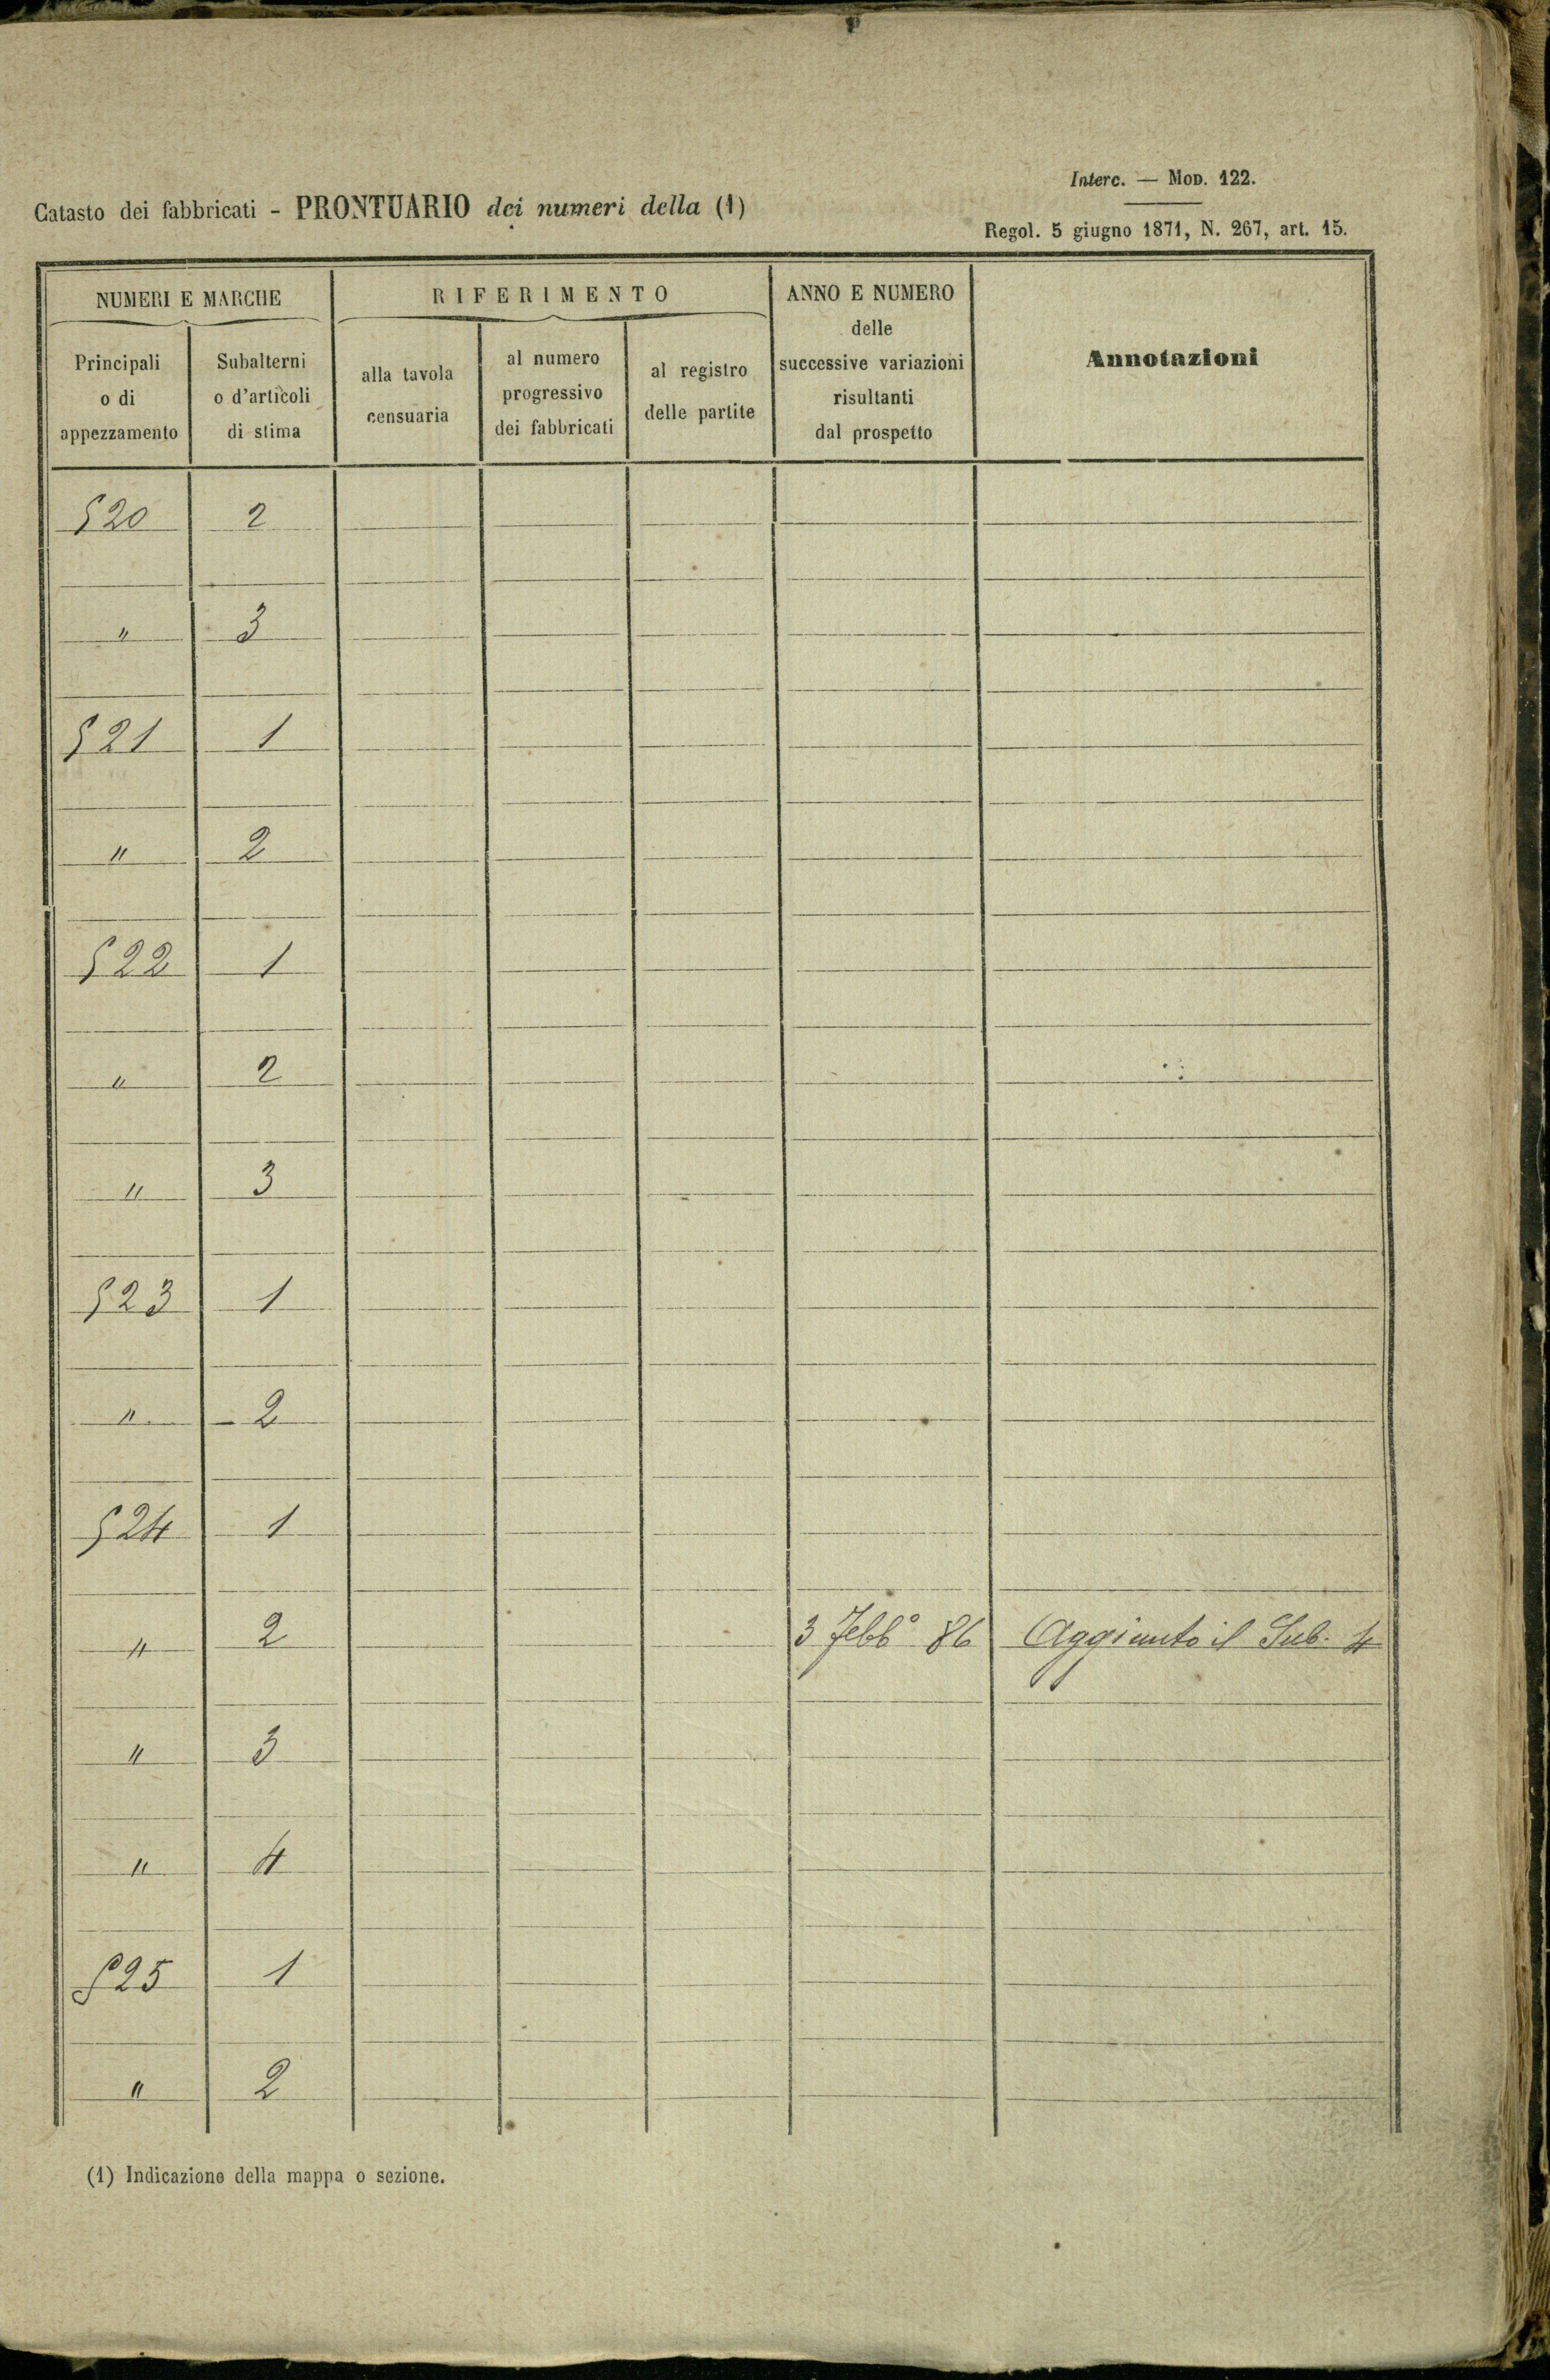 Interc. — Mod. 122.
Catasto dei fabbricati - PRONTUARIO dei numeri della (1)
Regol. 5 giugno 1871, N. 267, art. 15.
NUMERI E MARCHE
RIFERIMENTO
ANNO E NUMERO
delle
successive variazioni
risultanti
dal prospetto
Annotazioni
Principali
o di
appezzamento
Subalterni
o d'articoli
di stima
alla tavola
censuaria
al numero
progressivo
dei fabbricati
al registro
delle partite
520 2
" 3
521 1
" 2
522 1
" 2
" 3
523 1
" 2
524 1
" 2 3 Febb° 86 Aggiunto il Sub. 4
" 3
" 4
525 1
" 2
(1) Indicazione della mappa o sezione.